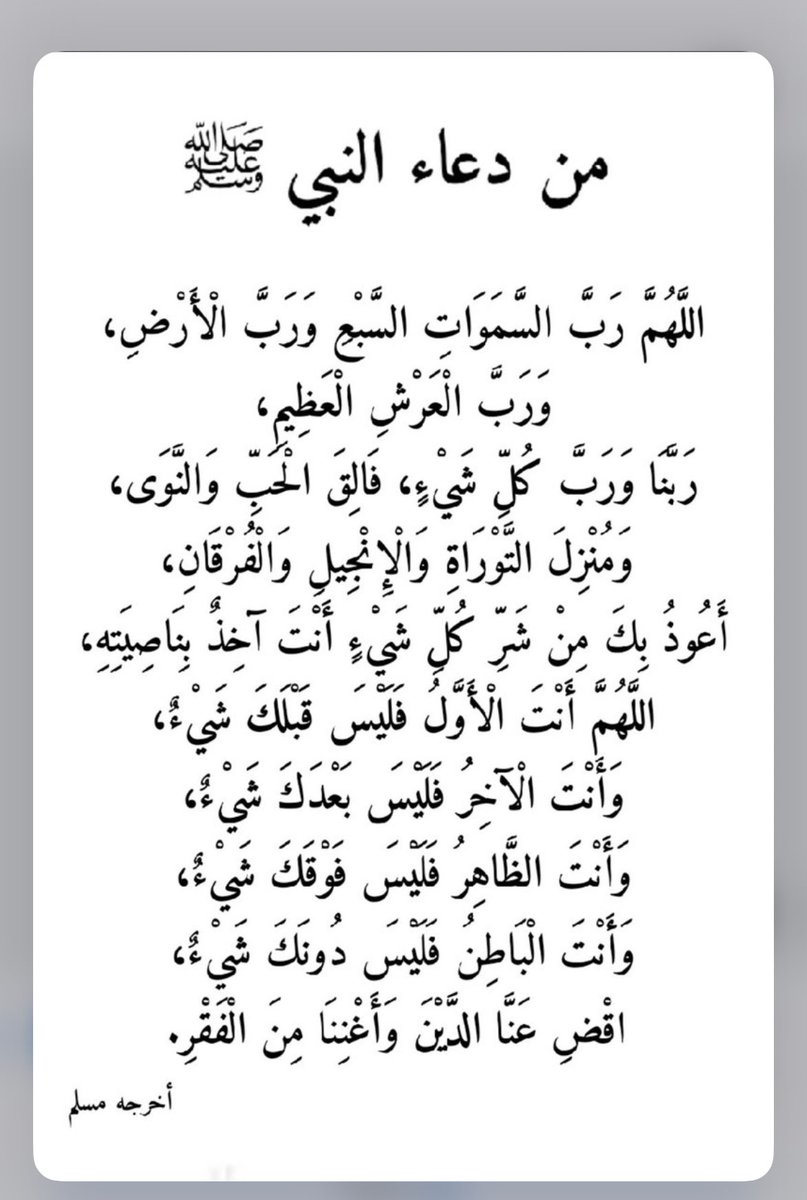 من دعاء النبي ﷺ
اللَّهُمَّ رَبَّ السَّمَوَاتِ السَّبْعِ وَرَبَّ الْأَرْضِ،
وَرَبَّ الْعَرْشِ الْعَظِيمِ،
رَبَّنَا وَرَبَّ كُلِّ شَيْءٍ، فَالِقَ الْحَبِّ وَالنَّوَى،
وَمُنْزِلَ التَّوْرَاةِ وَالْإِنْجِيلِ وَالْفُرْقَانِ،
أَعُوذُ بِكَ مِنْ شَرِّ كُلِّ شَيْءٍ أَنْتَ آخِذٌ بِنَاصِيَتِهِ،
اللَّهُمَّ أَنْتَ الْأَوَّلُ فَلَيْسَ قَبْلَكَ شَيْءٌ،
وَأَنْتَ الْآخِرُ فَلَيْسَ بَعْدَكَ شَيْءٌ،
وَأَنْتَ الظَّاهِرُ فَلَيْسَ فَوْقَكَ شَيْءٌ،
وَأَنْتَ الْبَاطِنُ فَلَيْسَ دُونَكَ شَيْءٌ،
اقْضِ عَنَّا الدَّيْنَ وَأَغْنِنَا مِنَ الْفَقْرِ.
أخرجه مسلم